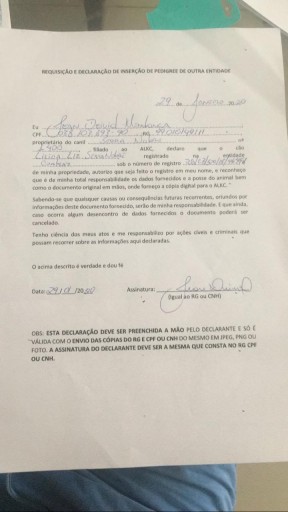 REQUISIÇÃO E DECLARAÇÃO DE INSERÇÃO DE PEDIGREE DE OUTRA ENTIDADE
29 de Janeiro de 20
Eu
CPF. RG
proprietário do canil o
filiado ao ALKC, declaro que o cão
registrado na entidade
sob o número de registro
de minha propriedade, autorizo que seja feito o registro em meu nome, e reconheço
que é de minha total responsabilidade os dados fornecidos e a posse do animal bem
como o documento original em mãos, onde forneço a cópia digital para o ALKC.
Sabendo-se que quaisquer causas ou consequências futuras recorrentes, oriundos por
informações deste documento fornecido, serão de minha responsabilidade. E que ainda,
caso ocorra algum desencontro de dados fornecidos o documento poderá ser
cancelado.
Tenho ciência dos meus atos e me responsabilizo por ações cíveis e criminais que
possam recorrer sobre as informações aqui declaradas.
O acima descrito é verdade e dou fé
Data: Assinatura:
(Igual ao RG ou CNH)
OBS: ESTA DECLARAÇÃO DEVE SER PREENCHIDA A MÃO PELO DECLARANTE E SÓ É
VÁLIDA COM O ENVIO DAS CÓPIAS DO RG E CPF OU CNH DO MESMO EM JPEG, PNG OU
FOTO. A ASSINATURA DO DECLARANTE DEVE SER A MESMA QUE CONSTA NO RG CPF
OU CNH.